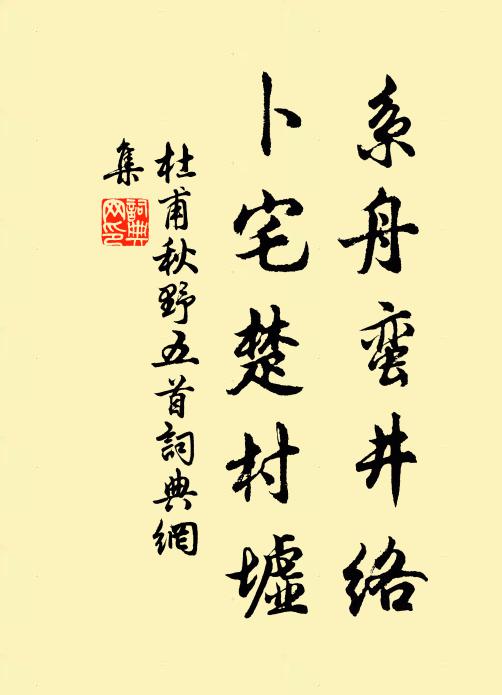 系舟蛮井络
卜宅楚村墟
杜甫秋野五首詞典網
集
詞典
网印